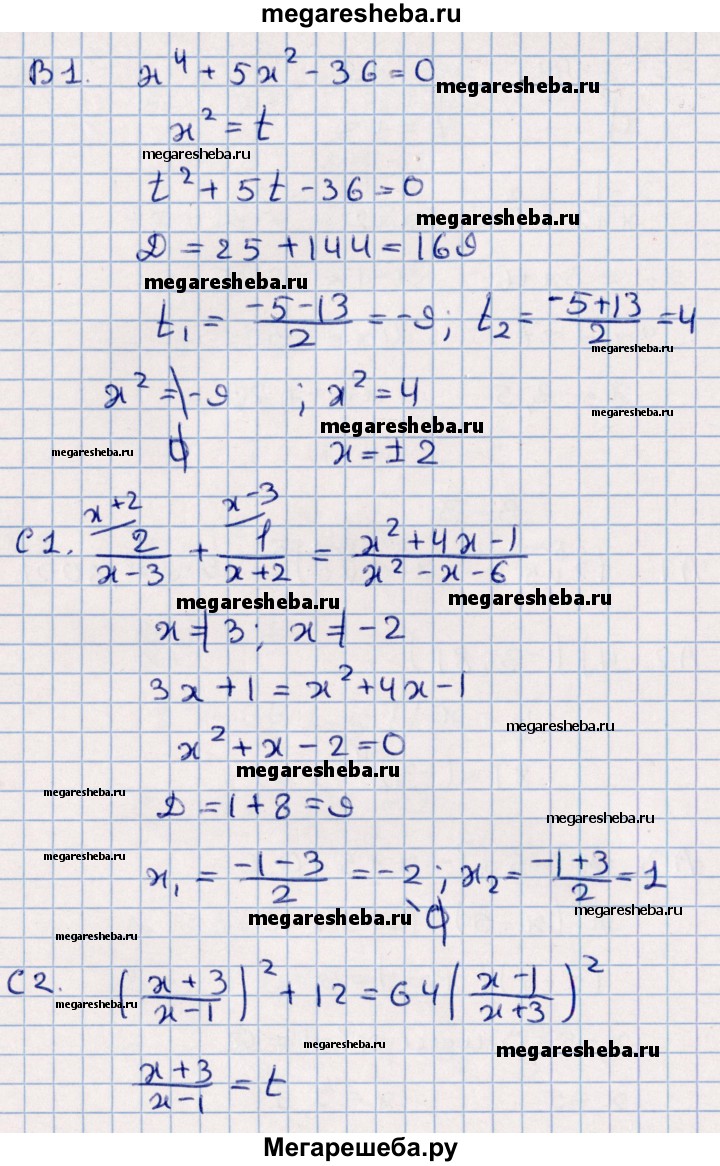 megaresheba.ru
В1. x⁴ + 5x² - 36 = 0
megaresheba.ru
x² = t
megaresheba.ru
t² + 5t - 36 = 0
megaresheba.ru
Д = 25 + 144 = 169
megaresheba.ru
t₁ = (-5-13)/2 = -9; t₂ = (-5+13)/2 = 4
megaresheba.ru
x² ≠ -9 ; x² = 4
megaresheba.ru
megaresheba.ru
megaresheba.ru
∅ x = ±2
x+2 x-3
С1. 2/(x-3) + 1/(x+2) = (x²+4x-1)/(x²-x-6)
megaresheba.ru megaresheba.ru
x ≠ 3; x ≠ -2
megaresheba.ru
3x + 1 = x² + 4x - 1
megaresheba.ru
x² + x - 2 = 0
megaresheba.ru
megaresheba.ru
Д = 1 + 8 = 9
megaresheba.ru
megaresheba.ru
x₁ = (-1-3)/2 = -2; x₂ = (-1+3)/2 = 1
megaresheba.ru ∅ megaresheba.ru
megaresheba.ru
С2. ((x+3)/(x-1))² + 12 = 64((x-1)/(x+3))²
megaresheba.ru
megaresheba.ru megaresheba.ru
(x+3)/(x-1) = t
Мегарешеба.ру